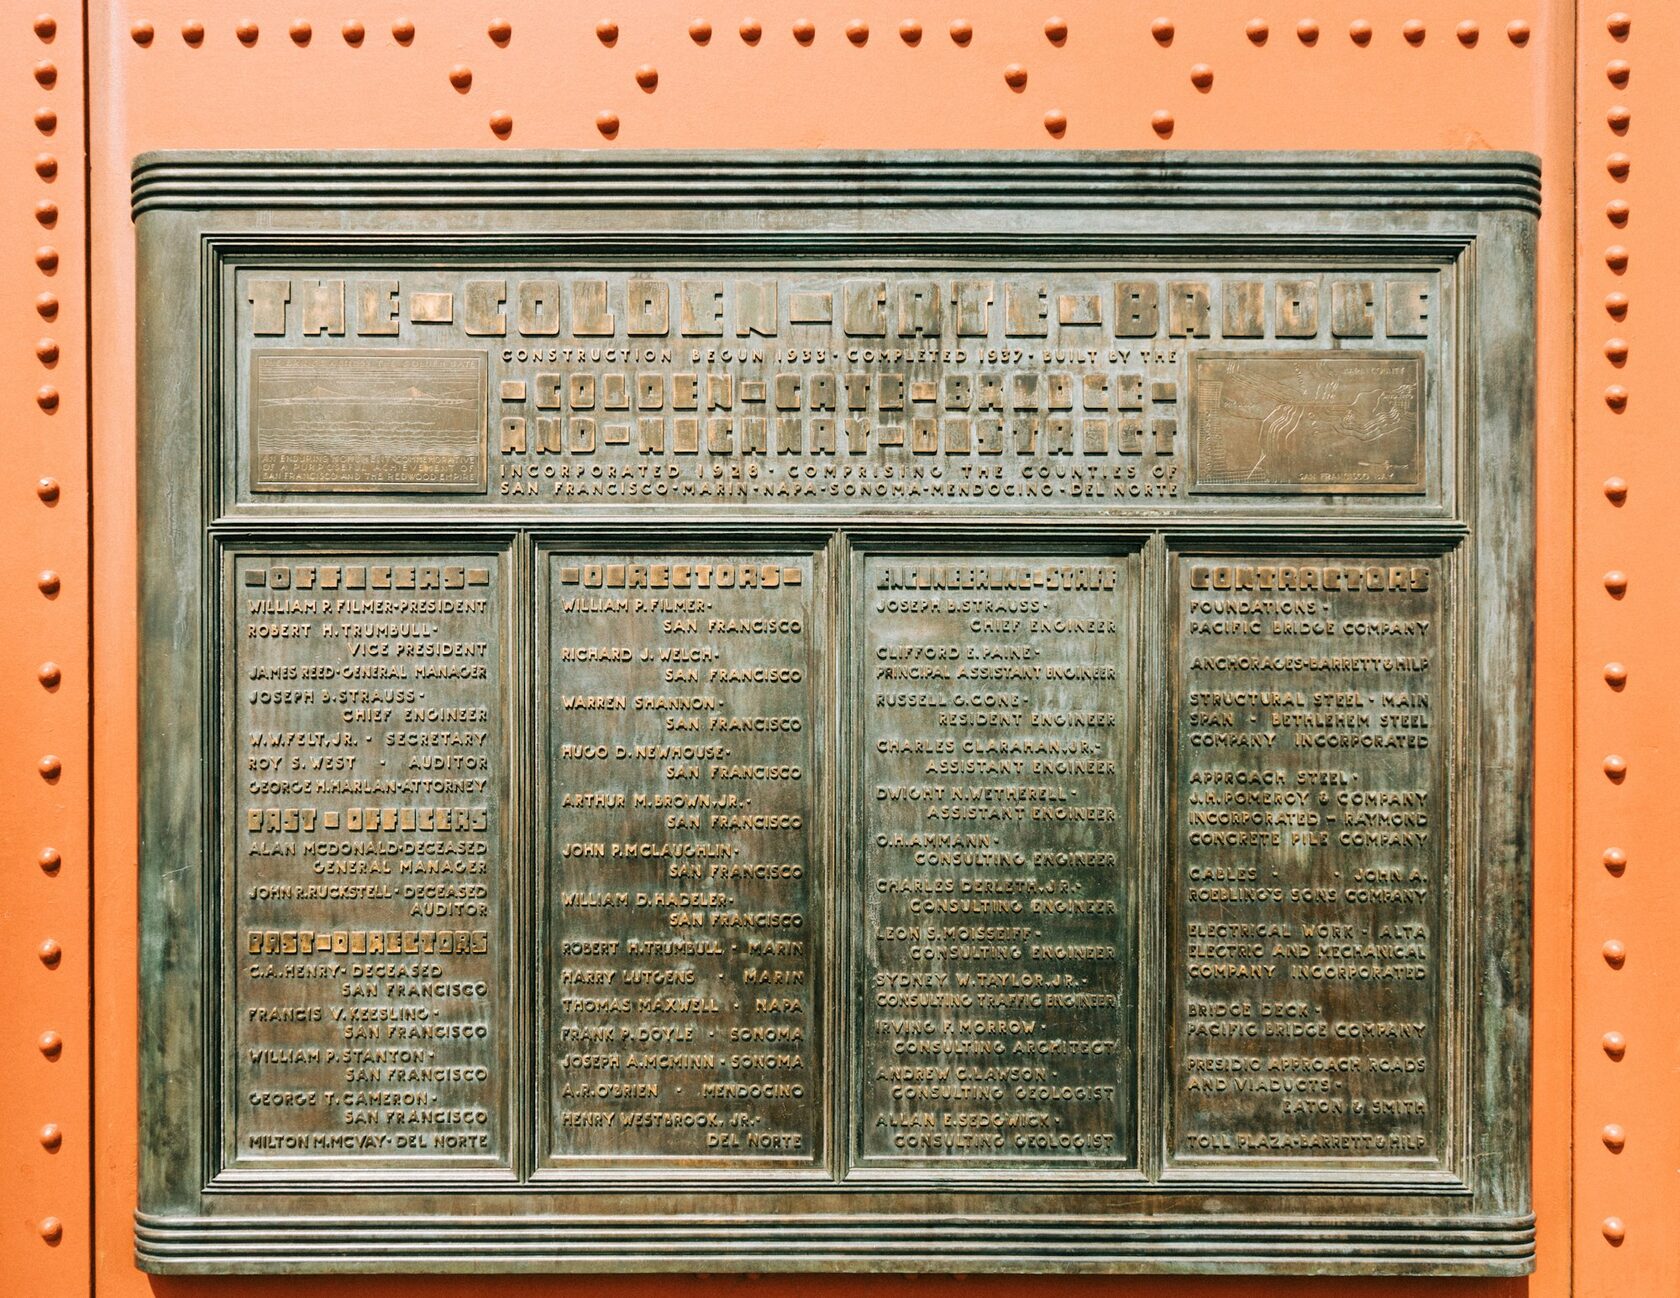 THE-GOLDEN-GATE-BRIDGE
CONSTRUCTION BEGUN 1933 · COMPLETED 1937 · BUILT BY THE
-GOLDEN-GATE-BRIDGE-
AND-HIGHWAY-DISTRICT
INCORPORATED 1928 · COMPRISING THE COUNTIES OF
SAN FRANCISCO·MARIN·NAPA·SONOMA·MENDOCINO·DEL NORTE
AN ENDURING MONUMENT COMMEMORATIVE
OF A PURPOSEFUL ACHIEVEMENT OF
SAN FRANCISCO AND THE REDWOOD EMPIRE
MARIN COUNTY
SAN FRANCISCO BAY
-OFFICERS-
WILLIAM P. FILMER·PRESIDENT
ROBERT H. TRUMBULL·
VICE PRESIDENT
JAMES REED·GENERAL MANAGER
JOSEPH B. STRAUSS·
CHIEF ENGINEER
W.W. FELT, JR. · SECRETARY
ROY S. WEST · AUDITOR
GEORGE H. HARLAN·ATTORNEY
PAST-OFFICERS
ALAN MCDONALD·DECEASED
GENERAL MANAGER
JOHN R. RUCKSTELL·DECEASED
AUDITOR
PAST-DIRECTORS
C.A. HENRY·DECEASED
SAN FRANCISCO
FRANCIS V. KEESLING·
SAN FRANCISCO
WILLIAM P. STANTON·
SAN FRANCISCO
GEORGE T. CAMERON·
SAN FRANCISCO
MILTON M. MCVAY·DEL NORTE
-DIRECTORS-
WILLIAM P. FILMER·
SAN FRANCISCO
RICHARD J. WELCH·
SAN FRANCISCO
WARREN SHANNON·
SAN FRANCISCO
HUGO D. NEWHOUSE·
SAN FRANCISCO
ARTHUR M. BROWN, JR.·
SAN FRANCISCO
JOHN P. MCLAUGHLIN·
SAN FRANCISCO
WILLIAM D. HADELER·
SAN FRANCISCO
ROBERT H. TRUMBULL · MARIN
HARRY LUTGENS · MARIN
THOMAS MAXWELL · NAPA
FRANK P. DOYLE · SONOMA
JOSEPH A. MCMINN·SONOMA
A.R. O'BRIEN · MENDOCINO
HENRY WESTBROOK, JR.·
DEL NORTE
ENGINEERING-STAFF
JOSEPH B. STRAUSS·
CHIEF ENGINEER
CLIFFORD E. PAINE·
PRINCIPAL ASSISTANT ENGINEER
RUSSELL G. CONE·
RESIDENT ENGINEER
CHARLES CLARAHAN, JR.·
ASSISTANT ENGINEER
DWIGHT N. WETHERELL·
ASSISTANT ENGINEER
O.H. AMMANN·
CONSULTING ENGINEER
CHARLES DERLETH, JR.·
CONSULTING ENGINEER
LEON S. MOISSEIFF·
CONSULTING ENGINEER
SYDNEY W. TAYLOR, JR.·
CONSULTING TRAFFIC ENGINEER
IRVING F. MORROW·
CONSULTING ARCHITECT
ANDREW C. LAWSON·
CONSULTING GEOLOGIST
ALLAN E. SEDGWICK·
CONSULTING GEOLOGIST
CONTRACTORS
FOUNDATIONS·
PACIFIC BRIDGE COMPANY
ANCHORAGES·BARRETT & HILP
STRUCTURAL STEEL · MAIN
SPAN · BETHLEHEM STEEL
COMPANY INCORPORATED
APPROACH STEEL·
J.H. POMEROY & COMPANY
INCORPORATED - RAYMOND
CONCRETE PILE COMPANY
CABLES · · JOHN A.
ROEBLING'S SONS COMPANY
ELECTRICAL WORK · ALTA
ELECTRIC AND MECHANICAL
COMPANY INCORPORATED
BRIDGE DECK·
PACIFIC BRIDGE COMPANY
PRESIDIO APPROACH ROADS
AND VIADUCTS·
EATON & SMITH
TOLL PLAZA·BARRETT & HILP